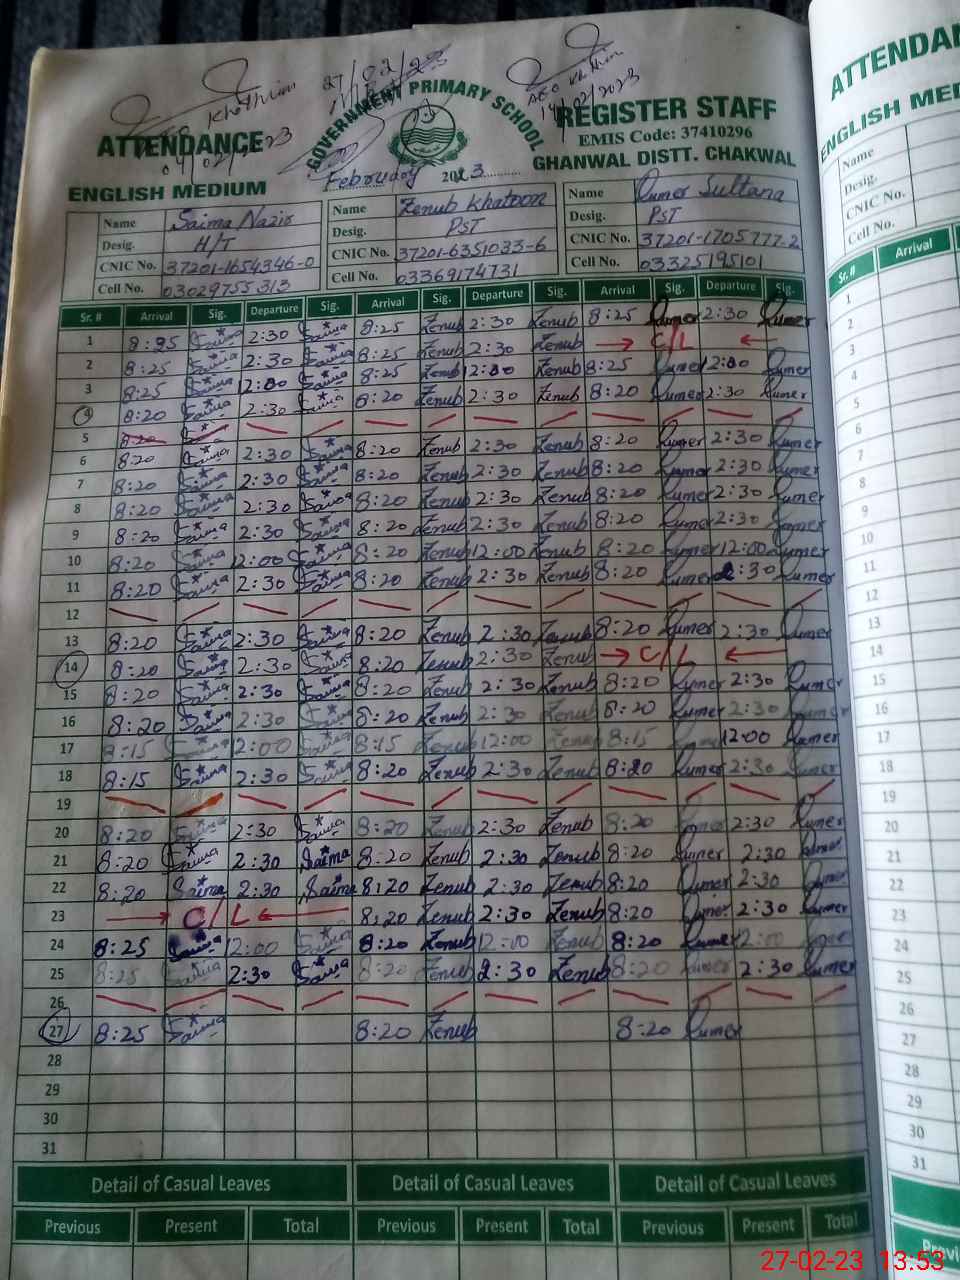 Khothian 27/02/23 AEO Khothian
04/02/2023 14/02/2023
ATTENDANCE GOVERNMENT PRIMARY SCHOOL REGISTER STAFF
EMIS Code: 37410296
ENGLISH MEDIUM February 2023 GHANWAL DISTT. CHAKWAL
Name Saima Nazir Name Zenub Khatoon Name Qumer Sultana
Desig. H/T Desig. PST Desig. PST
CNIC No. 37201-1654346-0 CNIC No. 37201-6351033-6 CNIC No. 37201-1705777-2
Cell No. 03029755313 Cell No. 03369174731 Cell No. 03325195101
Sr. # Arrival Sig. Departure Sig. Arrival Sig. Departure Sig. Arrival Sig. Departure Sig.
1 8:25 Saima 2:30 Saima 8:25 Zenub 2:30 Zenub 8:25 Qumer 2:30 Qumer
2 8:25 Saima 2:30 Saima 8:25 Zenub 2:30 Zenub → C/L ←
3 8:25 Saima 12:00 Saima 8:25 Zenub 12:00 Zenub 8:25 Qumer 12:00 Qumer
4 8:20 Saima 2:30 Saima 8:20 Zenub 2:30 Zenub 8:20 Qumer 2:30 Qumer
5 8:20
6 8:20 Saima 2:30 Saima 8:20 Zenub 2:30 Zenub 8:20 Qumer 2:30 Qumer
7 8:20 Saima 2:30 Saima 8:20 Zenub 2:30 Zenub 8:20 Qumer 2:30 Qumer
8 8:20 Saima 2:30 Saima 8:20 Zenub 2:30 Zenub 8:20 Qumer 2:30 Qumer
9 8:20 Saima 2:30 Saima 8:20 Zenub 2:30 Zenub 8:20 Qumer 2:30 Qumer
10 8:20 Saima 12:00 Saima 8:20 Zenub 12:00 Zenub 8:20 Qumer 12:00 Qumer
11 8:20 Saima 2:30 Saima 8:20 Zenub 2:30 Zenub 8:20 Qumer 2:30 Qumer
12
13 8:20 Saima 2:30 Saima 8:20 Zenub 2:30 Zenub 8:20 Qumer 2:30 Qumer
14 8:20 Saima 2:30 Saima 8:20 Zenub 2:30 Zenub → C/L ←
15 8:20 Saima 2:30 Saima 8:20 Zenub 2:30 Zenub 8:20 Qumer 2:30 Qumer
16 8:20 Saima 2:30 Saima 8:20 Zenub 2:30 Zenub 8:20 Qumer 2:30 Qumer
17 8:15 Saima 12:00 Saima 8:15 Zenub 12:00 Zenub 8:15 Qumer 12:00 Qumer
18 8:15 Saima 2:30 Saima 8:20 Zenub 2:30 Zenub 8:20 Qumer 2:30 Qumer
19
20 8:20 Saima 2:30 Saima 8:20 Zenub 2:30 Zenub 8:20 Qumer 2:30 Qumer
21 8:20 Saima 2:30 Saima 8:20 Zenub 2:30 Zenub 8:20 Qumer 2:30 Qumer
22 8:20 Saima 2:30 Saima 8:20 Zenub 2:30 Zenub 8:20 Qumer 2:30 Qumer
23 → C/L ← 8:20 Zenub 2:30 Zenub 8:20 Qumer 2:30 Qumer
24 8:25 Saima 12:00 Saima 8:20 Zenub 12:00 Zenub 8:20 Qumer 12:00 Qumer
25 8:25 Saima 2:30 Saima 8:20 Zenub 2:30 Zenub 8:20 Qumer 2:30 Qumer
26
27 8:25 Saima 8:20 Zenub 8:20 Qumer
28
29
30
31
Detail of Casual Leaves Detail of Casual Leaves Detail of Casual Leaves
Previous Present Total Previous Present Total Previous Present Total
ENGLISH
Name
Desig.
CNIC No.
Cell No.
Sr. # Arrival
1
2
3
4
5
6
7
8
9
10
11
12
13
14
15
16
17
18
19
20
21
22
23
24
25
26
27
28
29
30
31
27-02-23 13:53